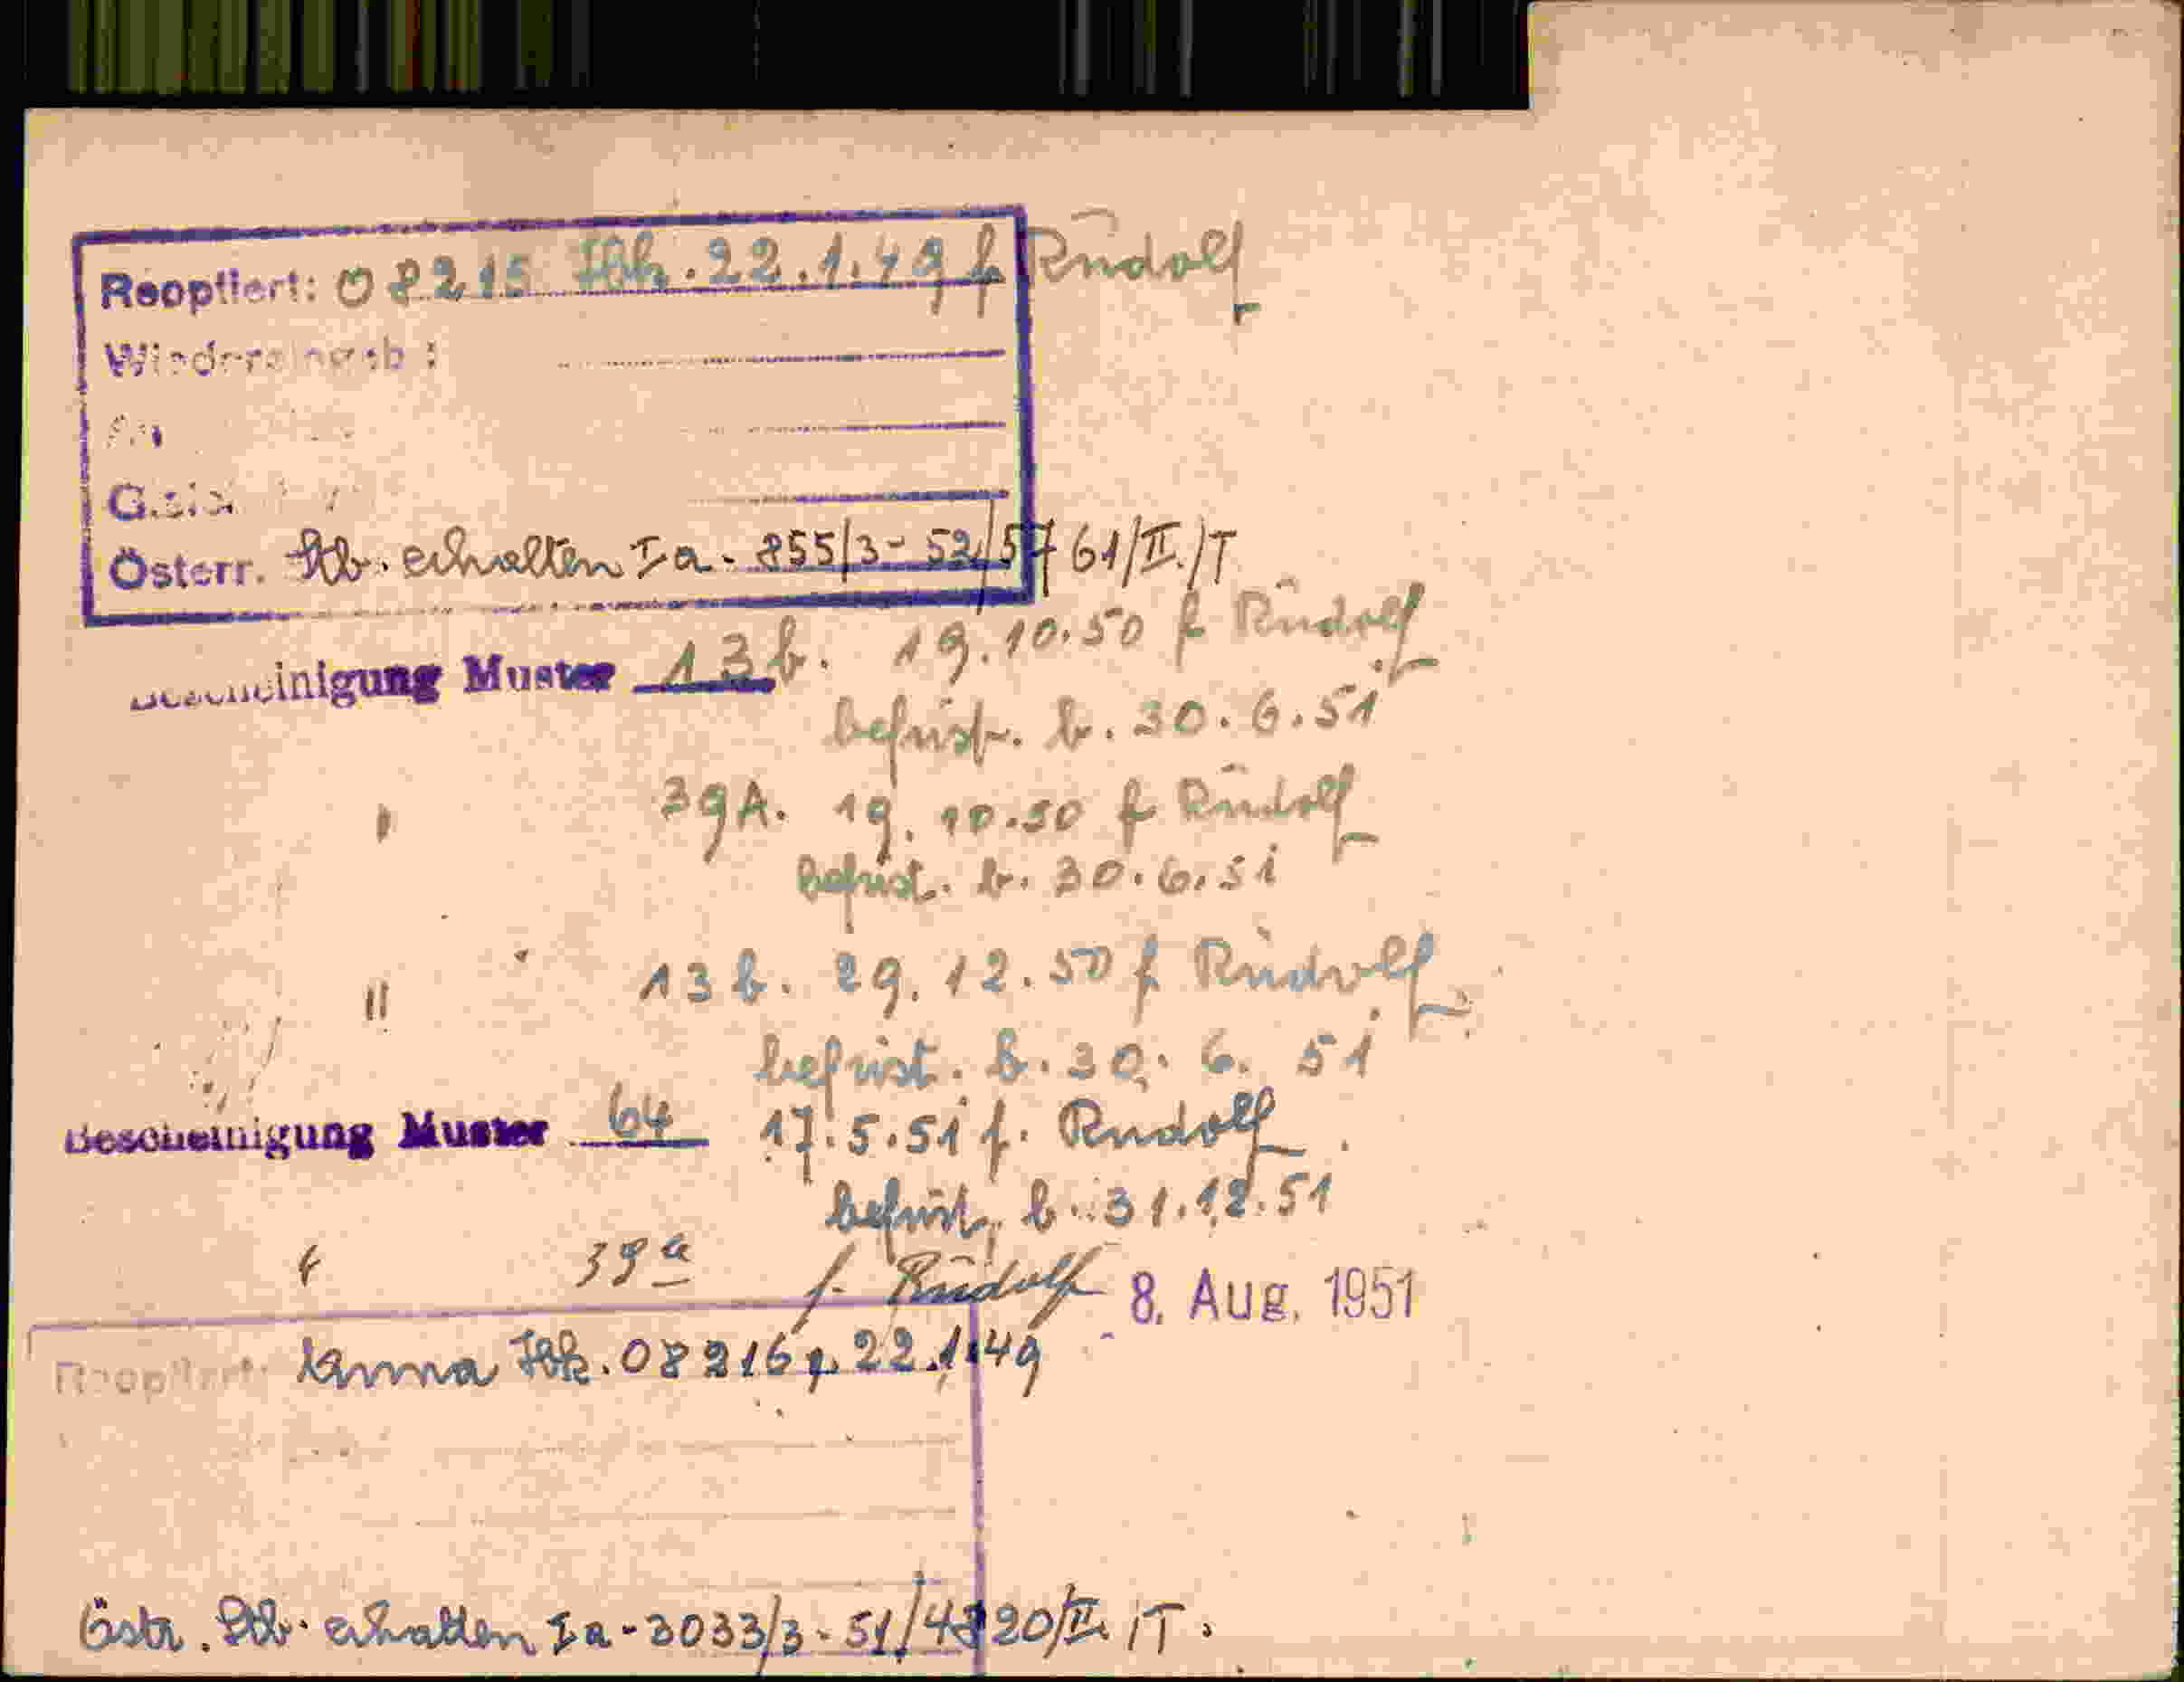 Reoptiert: 08215 Ibk. 22.1.49 f Rudolf
Österr. Stb. erhalten Ia - 855/3 - 52/57 61/II./T
Bescheinigung Muster 13b. 19.10.50 f Rudolf
befrist. b. 30.6.51
" 39A. 19.10.50 f Rudolf
befrist. b. 30.6.51
" 13b. 29.12.50 f Rudolf
befrist. b. 30.6.51
Bescheinigung Muster 64 17.5.51 f. Rudolf
befrist. b. 31.12.51
" 39a f. Rudolf 8. Aug. 1951
Reoptiert: Anna Ibk. 08216 f. 22.1.49
Östr. Stb. erhalten Ia - 3033/3 - 51/ 20/II /T.